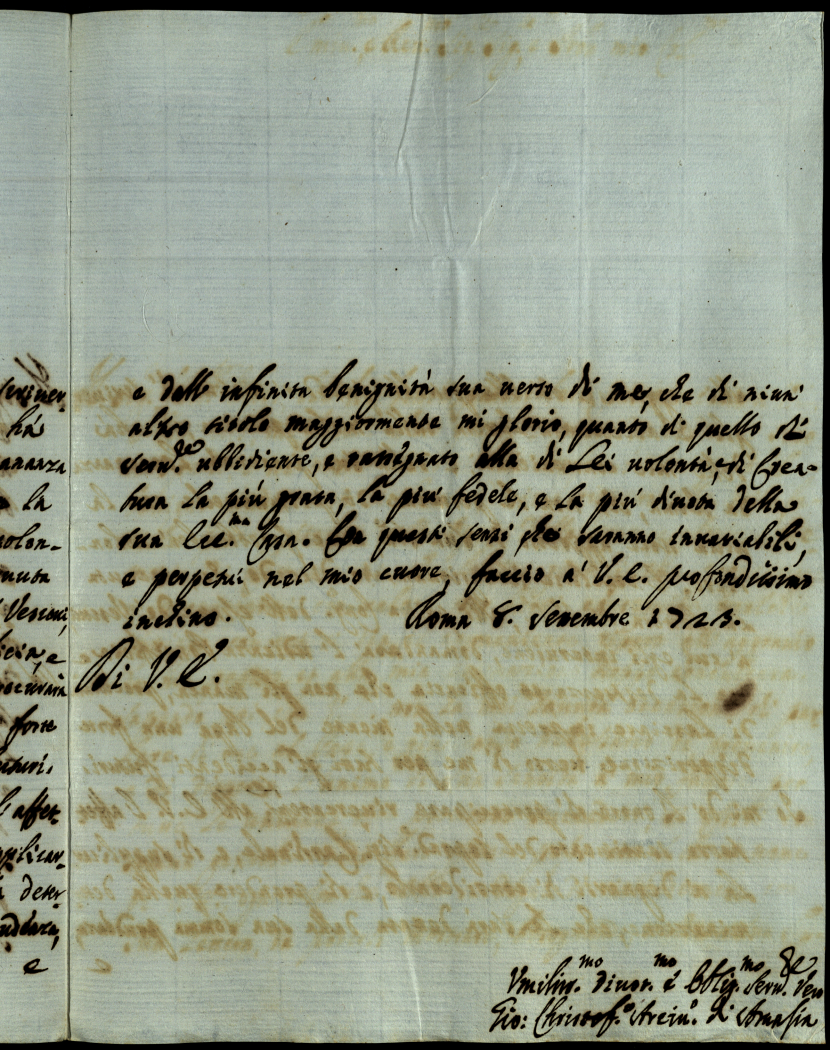 e dell' infinita benignità sua verso di me, che di niun'
altro titolo maggiormente mi glorio, quanto di quello di
serv.re ubbidiente, e rassegnato alla di Lei volontà, e di Crea-
tura la più grata, la più fedele, e la più divota della
sua Ecc.ma Casa. Con questi sensi, che saranno invariabili,
e perpetui nel mio cuore, faccio a' V. E. profondissimo
inchino. Roma 8. Settembre 1723.
Di V. E.
Vmiliss.mo divot.mo e Obblig.mo Serv.re Vero
Gio: Christof.o Arciv.o di Amasia
ha
la
forse
e